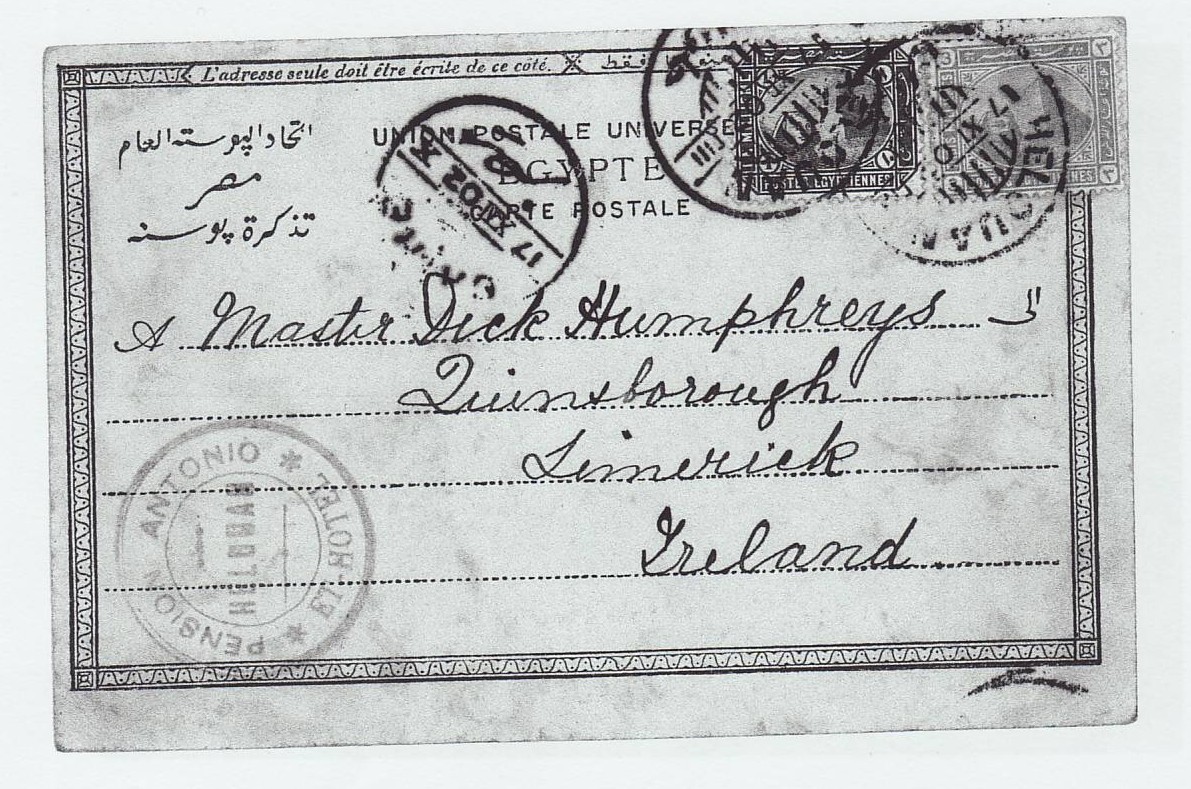 L'adresse seule doit être écrite de ce côté.
فقط
اتحاد البوسته العام
مصر
تذكرة بوسته
UNION POSTALE UNIVERSE
EGYPTE
CARTE POSTALE
POSTES EGYPTIENNES
HELOUAN
17 XI 0
17 XI 02
A Master Dick Humphreys
Quinsborough
Limerick
Ireland
PENSION ANTONIO * ET-HOTEL *
HELOUAN